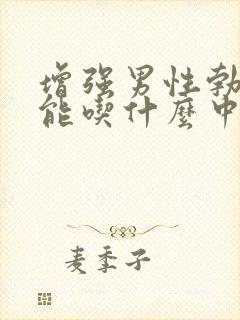 增强男性勃
能喫什麼中
麦季子